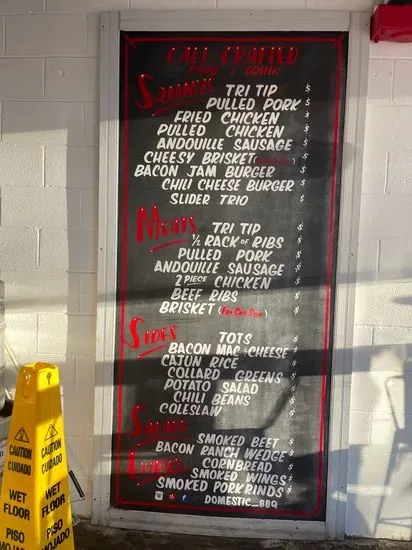 CALI CRAFTED
FOOD & DRINK
Sammies
TRI TIP $
PULLED PORK $
FRIED CHICKEN $
PULLED CHICKEN $
ANDOUILLE SAUSAGE $
CHEESY BRISKET $
BACON JAM BURGER $
CHILI CHEESE BURGER $
SLIDER TRIO $
Meats
TRI TIP $
½ RACK OF RIBS $
PULLED PORK $
ANDOUILLE SAUSAGE $
2 PIECE CHICKEN $
BEEF RIBS $
BRISKET (FRI SAT SUN) $
Sides
TOTS $
BACON MAC & CHEESE $
CAJUN RICE $
COLLARD GREENS $
POTATO SALAD $
CHILI BEANS $
COLESLAW $
Salad
SMOKED BEET $
BACON RANCH WEDGE $
CORNBREAD $
SMOKED WINGS $
SMOKED PORK RINDS $
DOMESTIC_BBQ
CAUTION
CUIDADO
WET
FLOOR
PISO
MOJADO
CAUTION
CUIDADO
WET
FLOOR
PISO
MOJADO